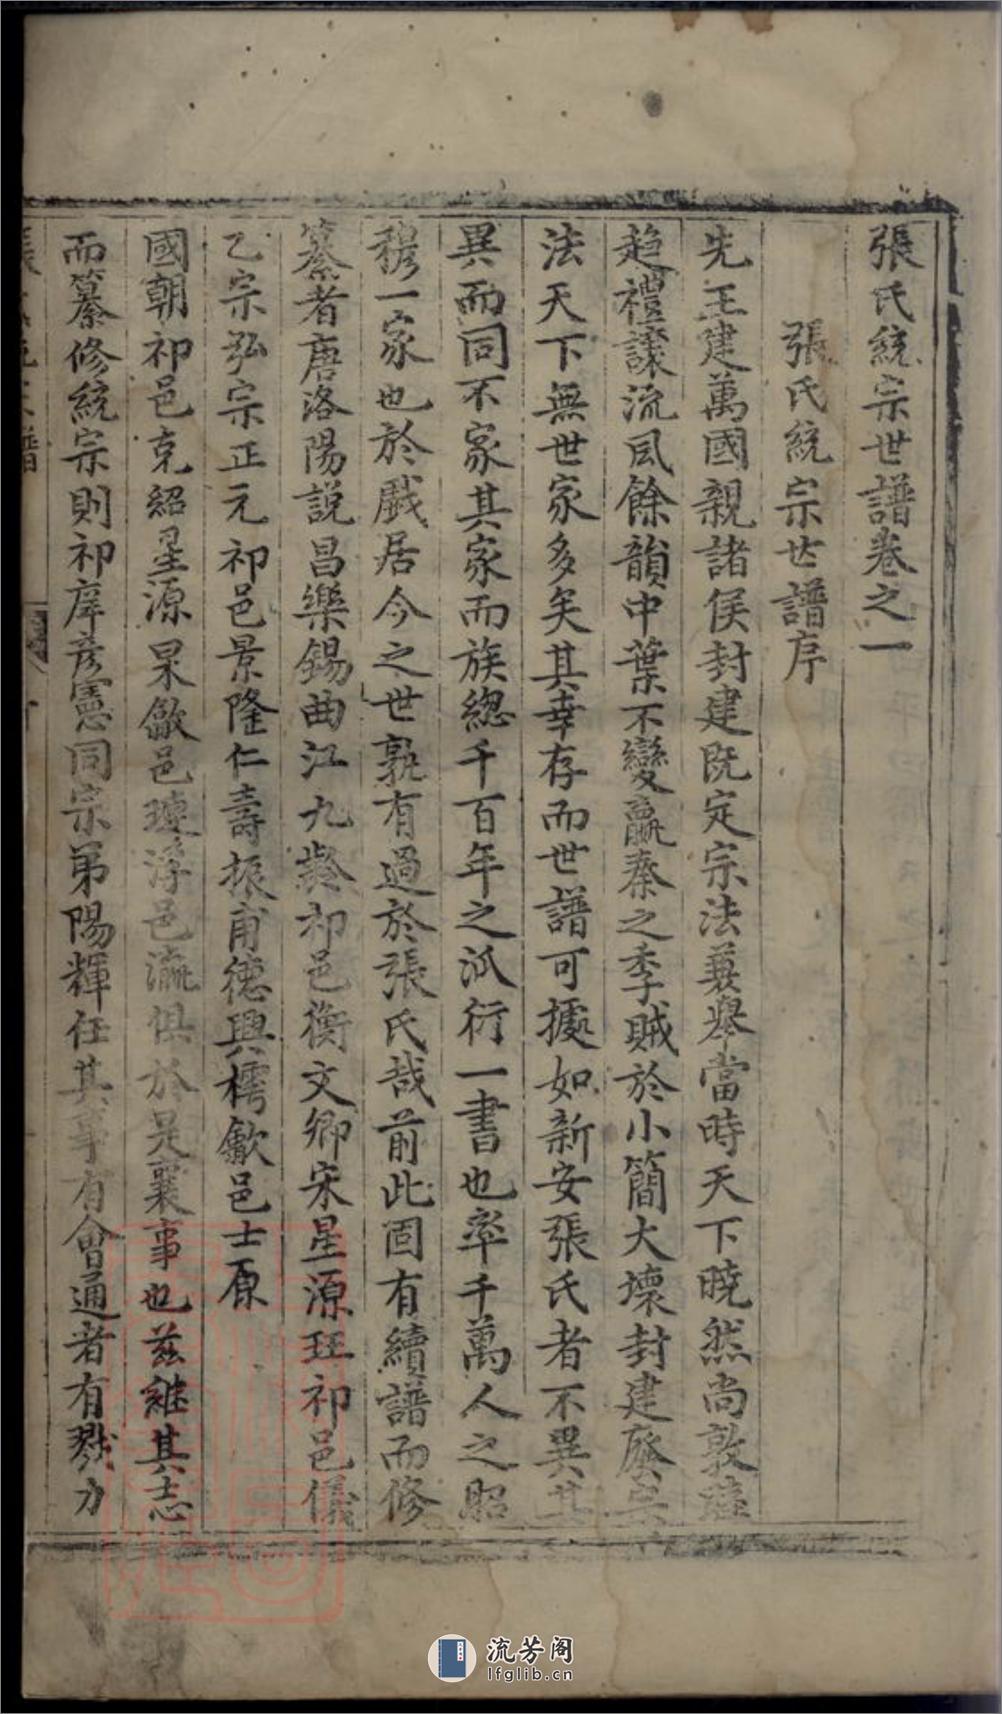 張氏統宗世譜卷之一
張氏統宗世譜序
先王建萬國親諸侯封建既定宗法兼舉當時天下曉然尚敦
趨禮讓流風餘韻中葉不變嬴秦之季賊於小簡大壞封建廢宗
法天下無世家多矣其幸存而世譜可據如新安張氏者不異其
異而同不家其家而族緫千百年之派衍一書也率千萬人之昭
穆一家也於戲居今之世孰有過於張氏哉前此固有續譜而修
纂者唐洛陽説昌樂錫曲江九齡祁邑衡文卿宋星源珏祁邑儀
乙宗弘宗正元祁邑景隆仁壽振甫德興樗歙邑士原
國朝祁邑克紹星源杲歙邑璉浮邑瀛俱於是襄事也茲継其志
而纂修統宗則祁庠彥憲同宗弟陽輝任其事有會通者有戮力
流芳阁
lfglib.cn